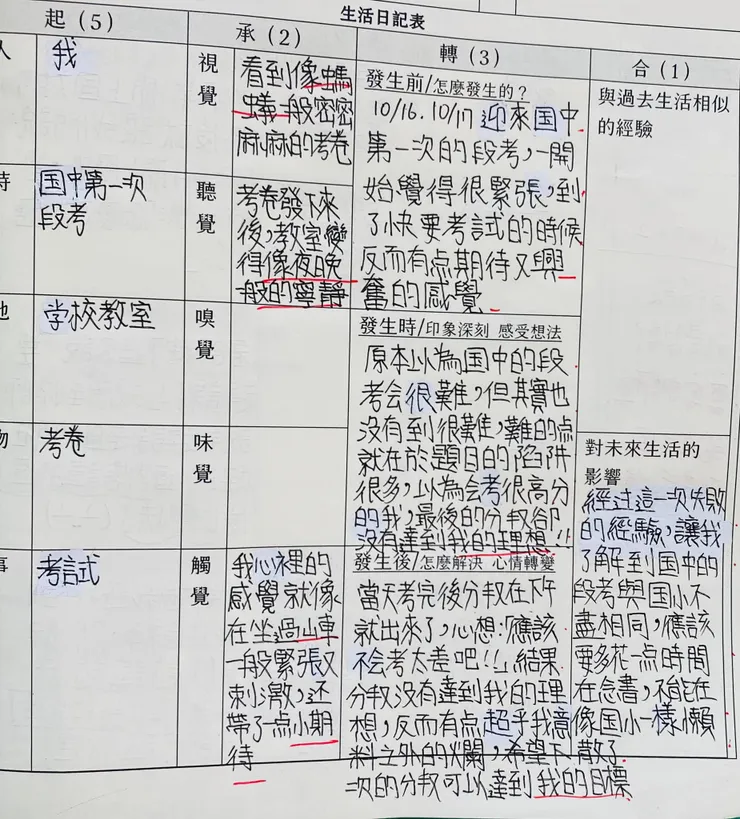 生活日記表
起(5)
承(2)
轉(3)
合(1)
人
我
視覺
看到像螞
蟻一般密密
麻麻的考卷
發生前/怎麼發生的？
10/16.10/17 迎來国中
第一次的段考，一開
始覺得很緊張，到
了快要考試的時候
反而有点期待又興
奮的感覺
與過去生活相似
的經驗
時
国中第一次
段考
聽覺
考卷發下來
後，教室變
得像夜晚
般的寧靜
地
学校教室
嗅覺
發生時/印象深刻 感受想法
原本以為国中的段
考会很難，但其實也
沒有到很難，難的点
就在於題目的陷阱
很多，以為会考很高分
的我，最後的分数卻
沒有達到我的理想!!
物
考卷
味覺
對未來生活的
影響
經过這一次失敗
的經驗，讓我
了解到国中的
段考與国小不
盡相同，應該
要多花一点時間
在念書，不能在
像国小一樣懶
散了
事
考試
觸覺
我心裡的
感覺就像
在坐過山車
一般緊張又
刺激，还
帶了一点小期
待
發生後/怎麼解決 心情轉變
當天考完後分数在下午
就出來了，心想:「應該
不会考太差吧!!」結果
分数沒有達到我的理
想，反而有点超乎我意
料之外的爛，希望下
次的分数可以達到我的目標